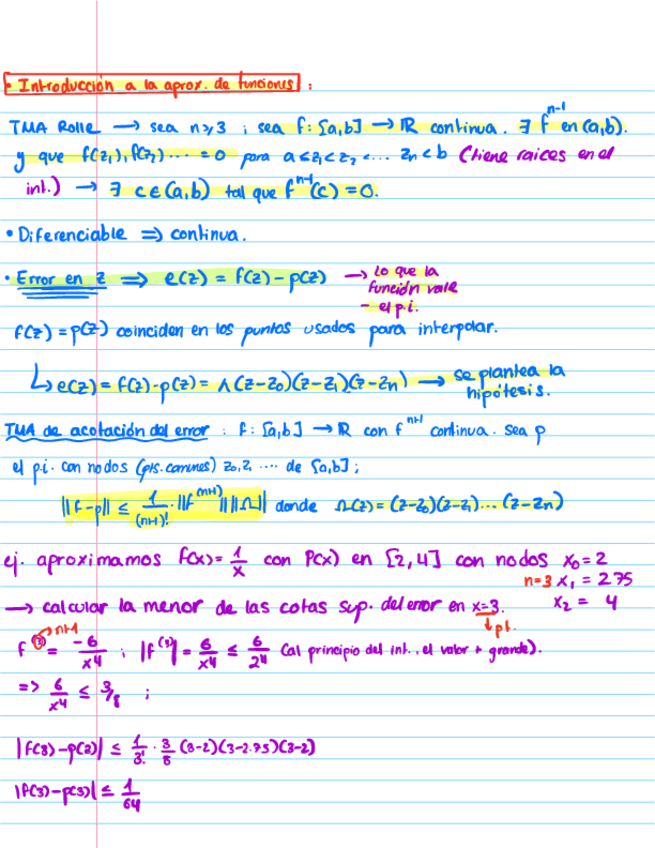 • Introducción a la aprox. de funciones :
TMA Rolle → sea n≥3 ; sea f: [a,b] → ℝ continua. ∃ f^(n-1) en (a,b).
y que f(z₁), f(z₂) ... = 0 para a ≤ z₁ < z₂ < ... zₙ < b (tiene raices en el
int.) → ∃ c ∈ (a,b) tal que f^(n-1)(c) = 0.
• Diferenciable ⇒ continua.
• Error en z ⇒ e(z) = f(z) - p(z) → lo que la
función vale
- el p.i.
f(z) = p(z) coinciden en los puntos usados para interpolar.
↳ e(z) = f(z) - p(z) = λ(z-z₀)(z-z₁)(z-zₙ) → se plantea la
hipótesis.
TMA de acotación del error : f: [a,b] → ℝ con f^(n+1) continua. Sea p
el p.i. con nodos (pts. comunes) z₀, z, .... de [a,b] ;
||f-p|| ≤ 1/(n+1)! · ||f^(n+1)|| ||Ω|| donde Ω(z) = (z-z₀)(z-z₁)...(z-zₙ)
ej. aproximamos f(x) = 1/x con P(x) en [2,4] con nodos x₀ = 2
n=3 x₁ = 2.75
→ calcular la menor de las cotas sup. del error en x=3. x₂ = 4
↓ pt.
f^(3) → n+1 = -6/x⁴ ; |f^(3)| = 6/x⁴ ≤ 6/2⁴ (al principio del int., el valor + grande).
=> 6/x⁴ ≤ 3/8 ;
|f(3) - p(3)| ≤ 1/3! · 3/8 (3-2)(3-2.75)(3-2)
|f(3) - p(3)| ≤ 1/64